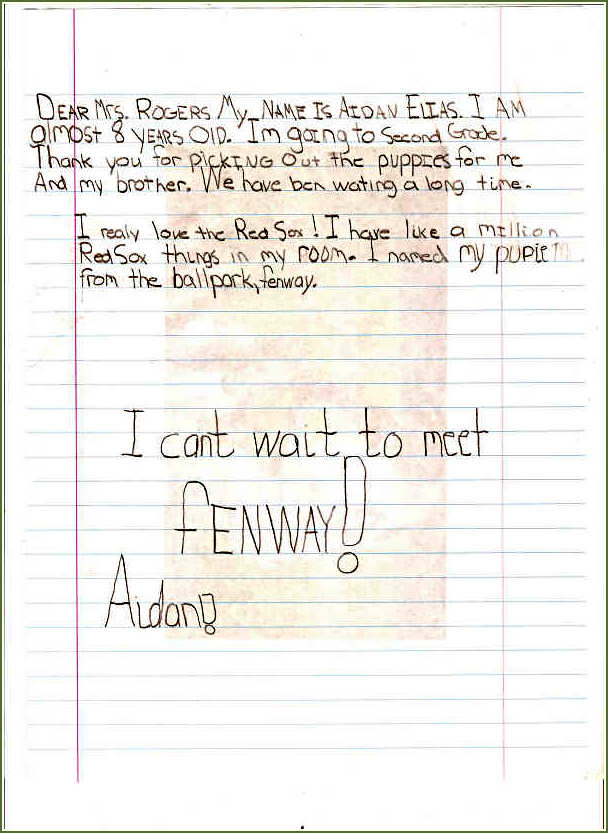 DEAR Mrs. ROGERS My NAME Is AIDAN ELIAS. I AM
almost 8 YEARS OlD. Im going to Second Grade.
Thank you for PICKING Out the puppies for me
And my brother. We have ben wating a long time.
I realy love the Red Sox! I have like a million
RedSox things in my room. I named my pupie
from the ballpark, fenway.
I cant wait to meet
fENWAY!
Aidan!